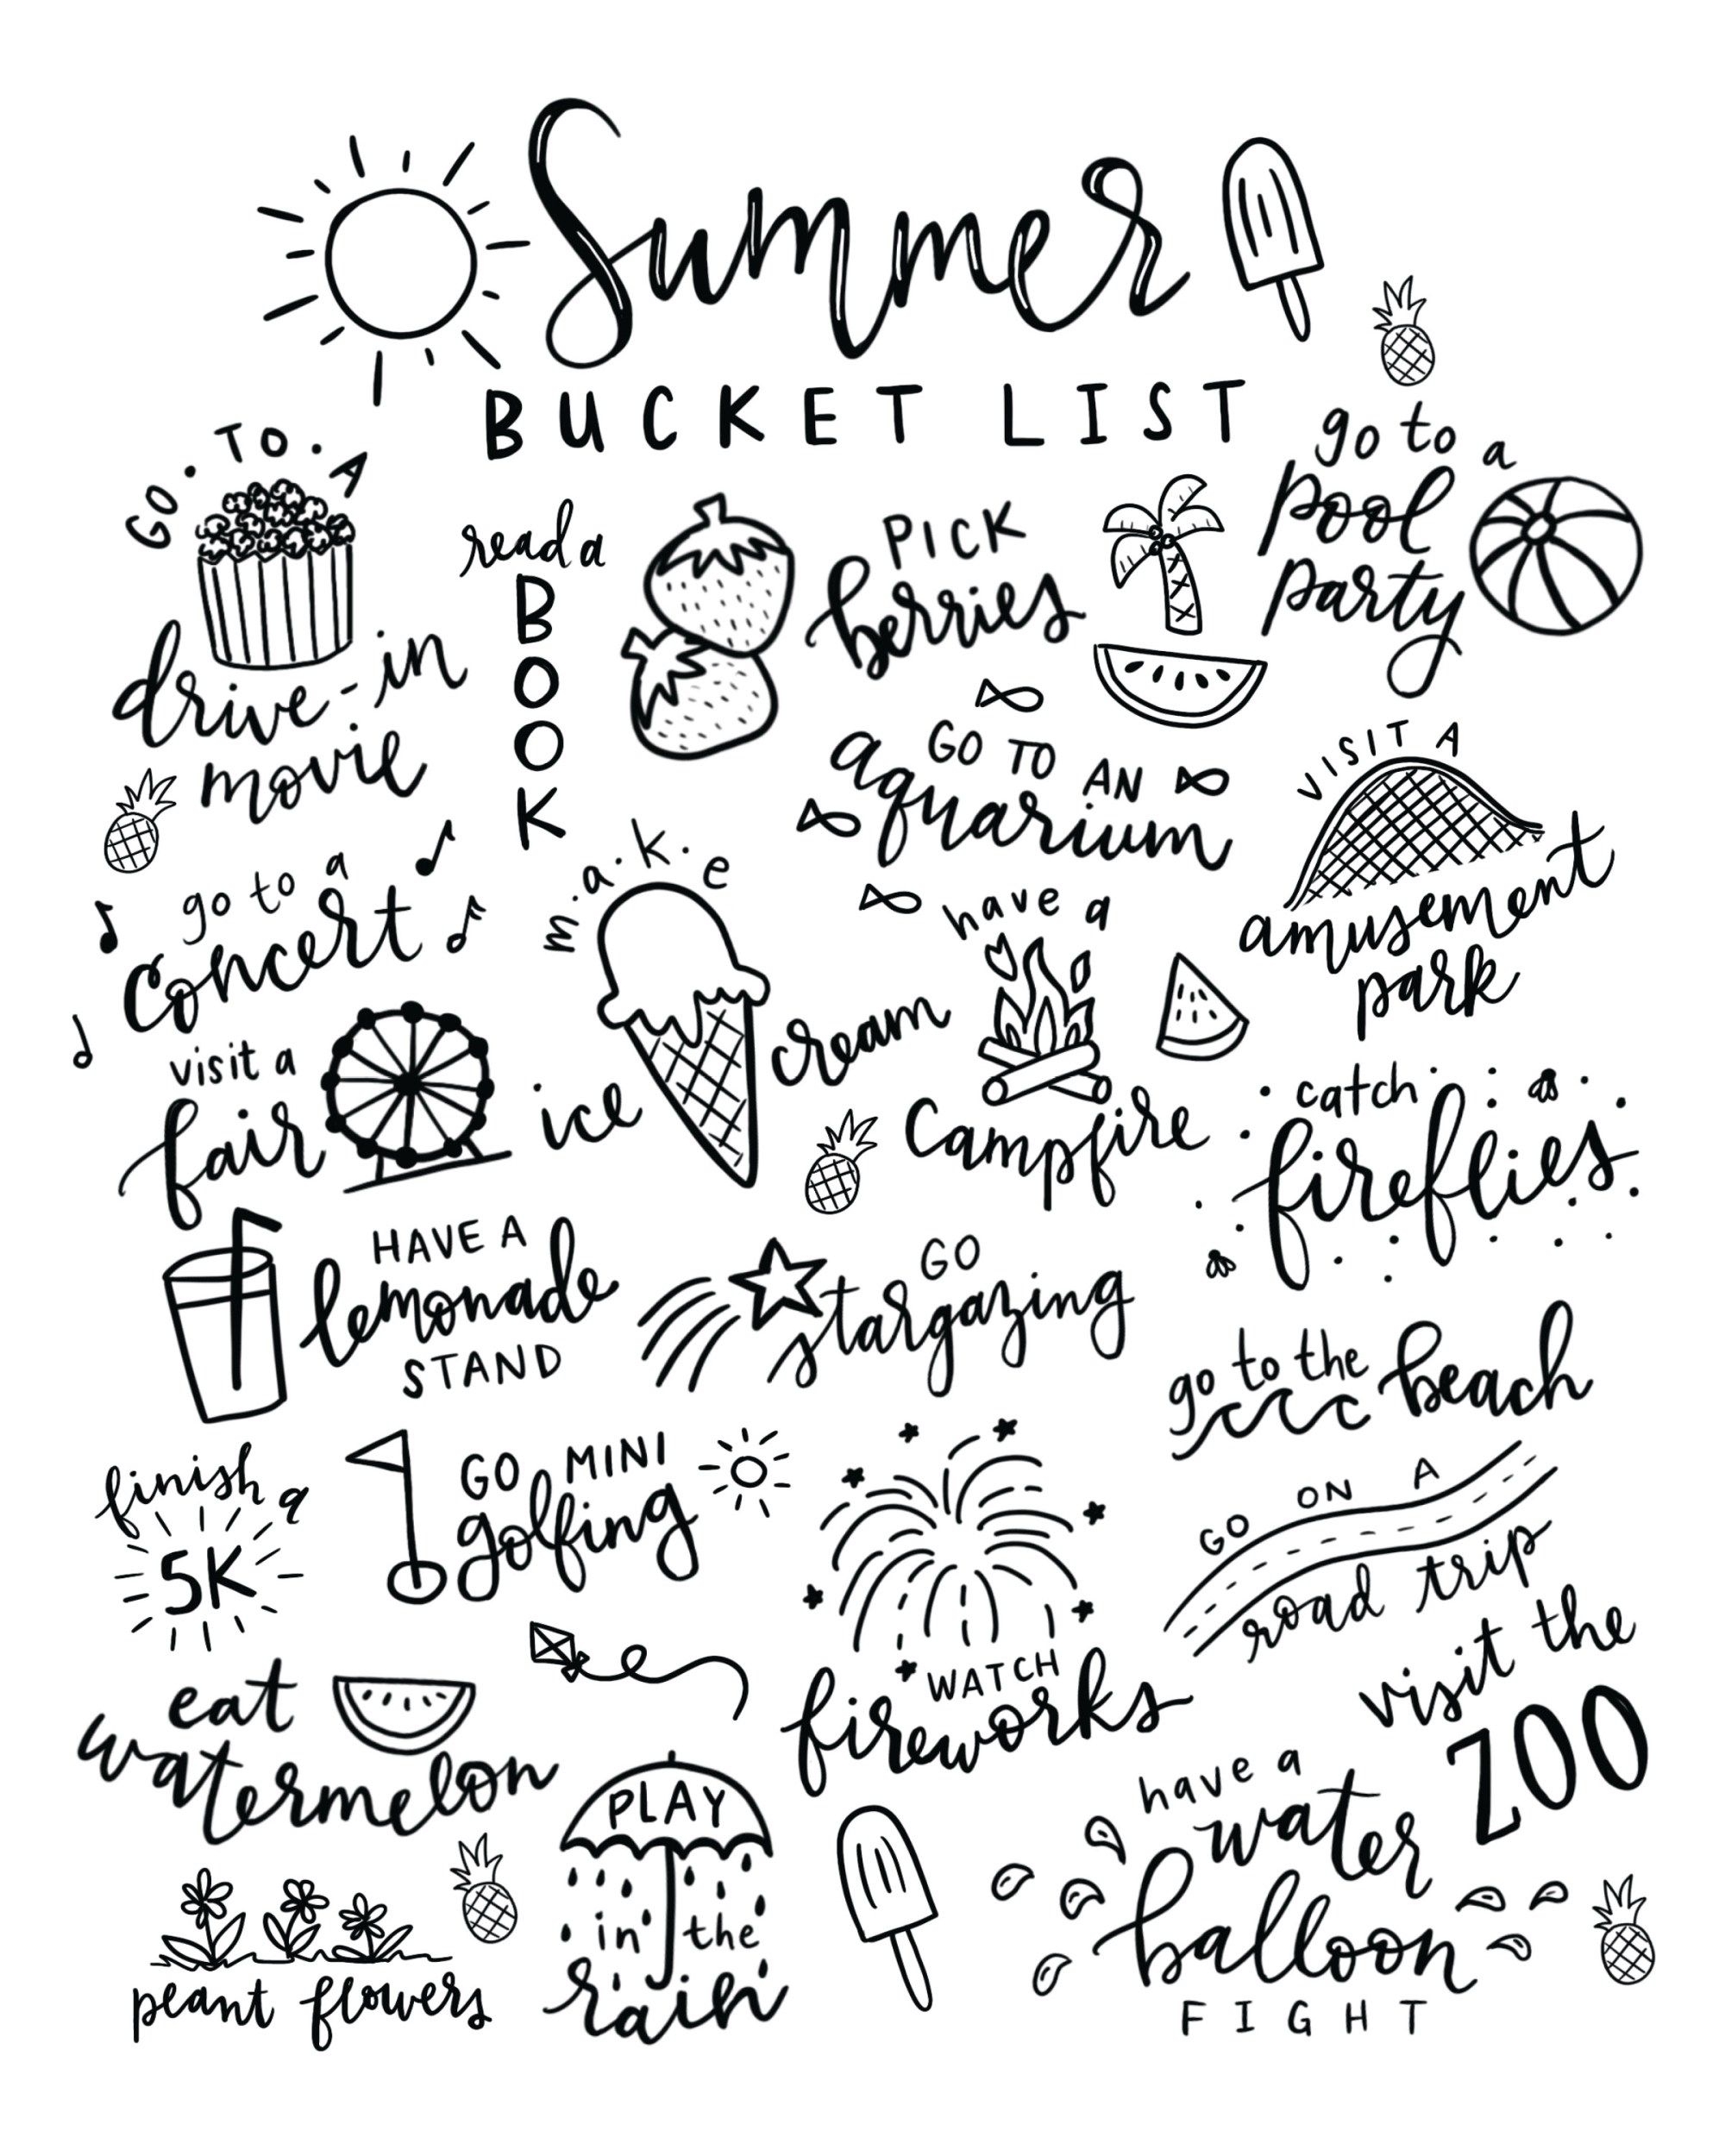 Summer
BUCKET LIST
GO · TO · A
drive-in
movie
read a
BOOK
PICK
berries
go to a
pool
party
GO TO AN
aquarium
VISIT A
amusement
park
go to a
concert
m·a·k·e
ice cream
have a
campfire
visit a
fair
catch
fireflies
HAVE A
lemonade
STAND
GO
stargazing
go to the beach
finish a
5K
GO MINI
golfing
WATCH
fireworks
GO ON A
road trip
visit the
ZOO
eat
watermelon
PLAY
in the
rain
have a
water
balloon
FIGHT
plant flowers